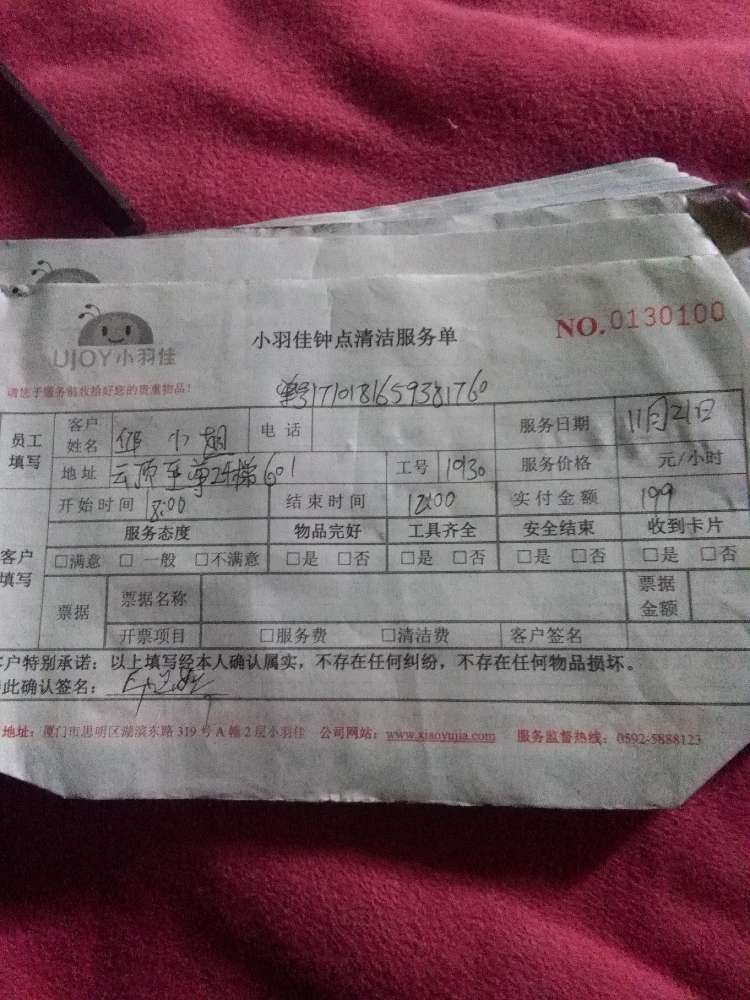 UJOY小羽佳
小羽佳钟点清洁服务单
NO.0130100
请您于服务前收拾好您的贵重物品!
单号1710181659381760
员工填写 客户姓名 邱小翅 电话 服务日期 11月21日
地址 云顶至尊24梯601 工号 1030 服务价格 元/小时
开始时间 8:00 结束时间 12:00 实付金额 199
客户填写 服务态度 物品完好 工具齐全 安全结束 收到卡片
□满意 □一般 □不满意 □是 □否 □是 □否 □是 □否 □是 □否
票据 票据名称 票据金额
开票项目 □服务费 □清洁费 客户签名
客户特别承诺：以上填写经本人确认属实，不存在任何纠纷，不存在任何物品损坏。
此确认签名：
地址：厦门市思明区湖滨东路319号A幢2层小羽佳 公司网站：www.xiaoyujia.com 服务监督热线：0592-5888123